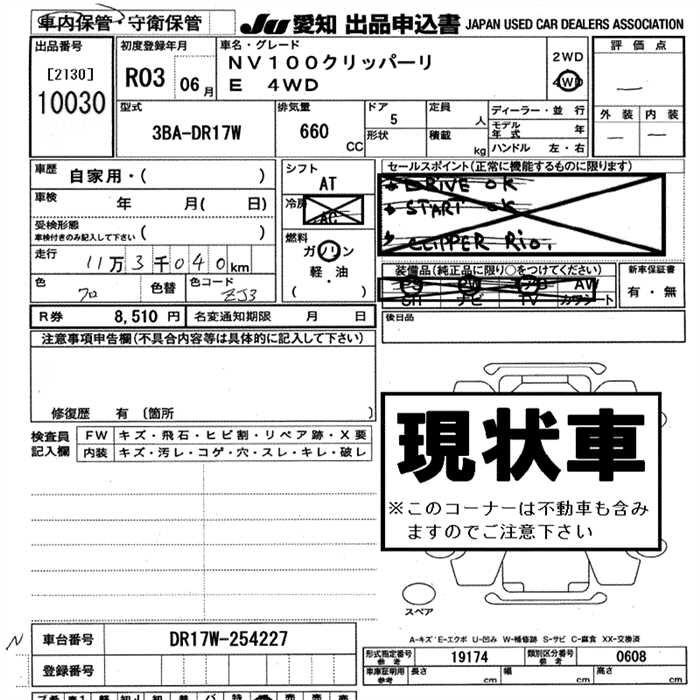 車内保管・守衛保管 JU 愛知 出品申込書 JAPAN USED CAR DEALERS ASSOCIATION
出品番号
[2130]
10030
初度登録年月
R03 06月
車名・グレード
NV100クリッパーリ
E 4WD
2WD
4WD
評価点
―
外装 内装
― ―
型式
3BA-DR17W
排気量
660
CC
ドア
5
形状
定員
人
積載
kg
ディーラー・並行
モデル年式 年
ハンドル 左・右
車歴
自家用・( )
車検
年 月( 日)
受検形態
車検付きのみ記入して下さい ( )
走行
11万3千040km
色
クロ
色替
色コード
ZJ3
シフト
AT
冷房
AC
燃料
ガソリン
軽・油
( )
セールスポイント(正常に機能するものに限ります)
DRIVE OK
START OK
CLIPPER RIO
装備品(純正品に限り○をつけてください)
PS PW AW
ナビ TV カワシート
新車保証書
有・無
R券 8,510円 名変通知期限 月 日
後日品
注意事項申告欄(不具合内容等は具体的に記入して下さい)
修復歴 有(箇所 )
検査員記入欄
FW キズ・飛石・ヒビ割・リペア跡・X要
内装 キズ・汚レ・コゲ・穴・スレ・キレ・破レ
現状車
※このコーナーは不動車も含み
ますのでご注意下さい
スペア
A-キズ E-エクボ U-凹み W-補修跡 S-サビ C-腐食 XX-交換済
N
車台番号 DR17W-254227
登録番号
形式指定番号
参考
19174
類別区分番号
参考
0608
車庫証明用
参考
長さ cm 幅 cm 高さ cm